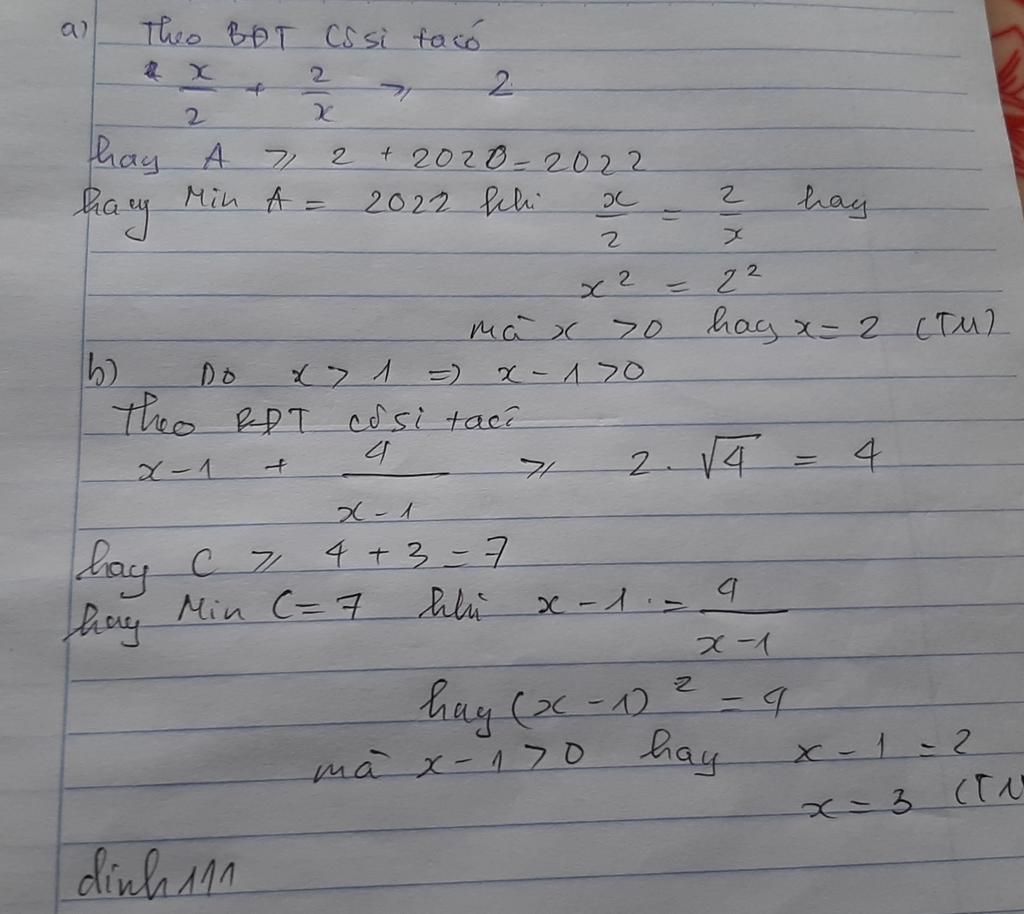 a) Theo BĐT Côsi ta có
x/2 + 2/x ≥ 2
hay A ≥ 2 + 2020 = 2022
hay Min A = 2022 khi x/2 = 2/x hay
x² = 2²
mà x > 0 hay x = 2 (TM)
b) Do x > 1 => x - 1 > 0
Theo BĐT côsi ta có
x - 1 + 4/(x - 1) ≥ 2 . √4 = 4
hay C ≥ 4 + 3 = 7
hay Min C = 7 khi x - 1 = 4/(x - 1)
hay (x - 1)² = 4
mà x - 1 > 0 hay x - 1 = 2
x = 3 (TM
dinh111